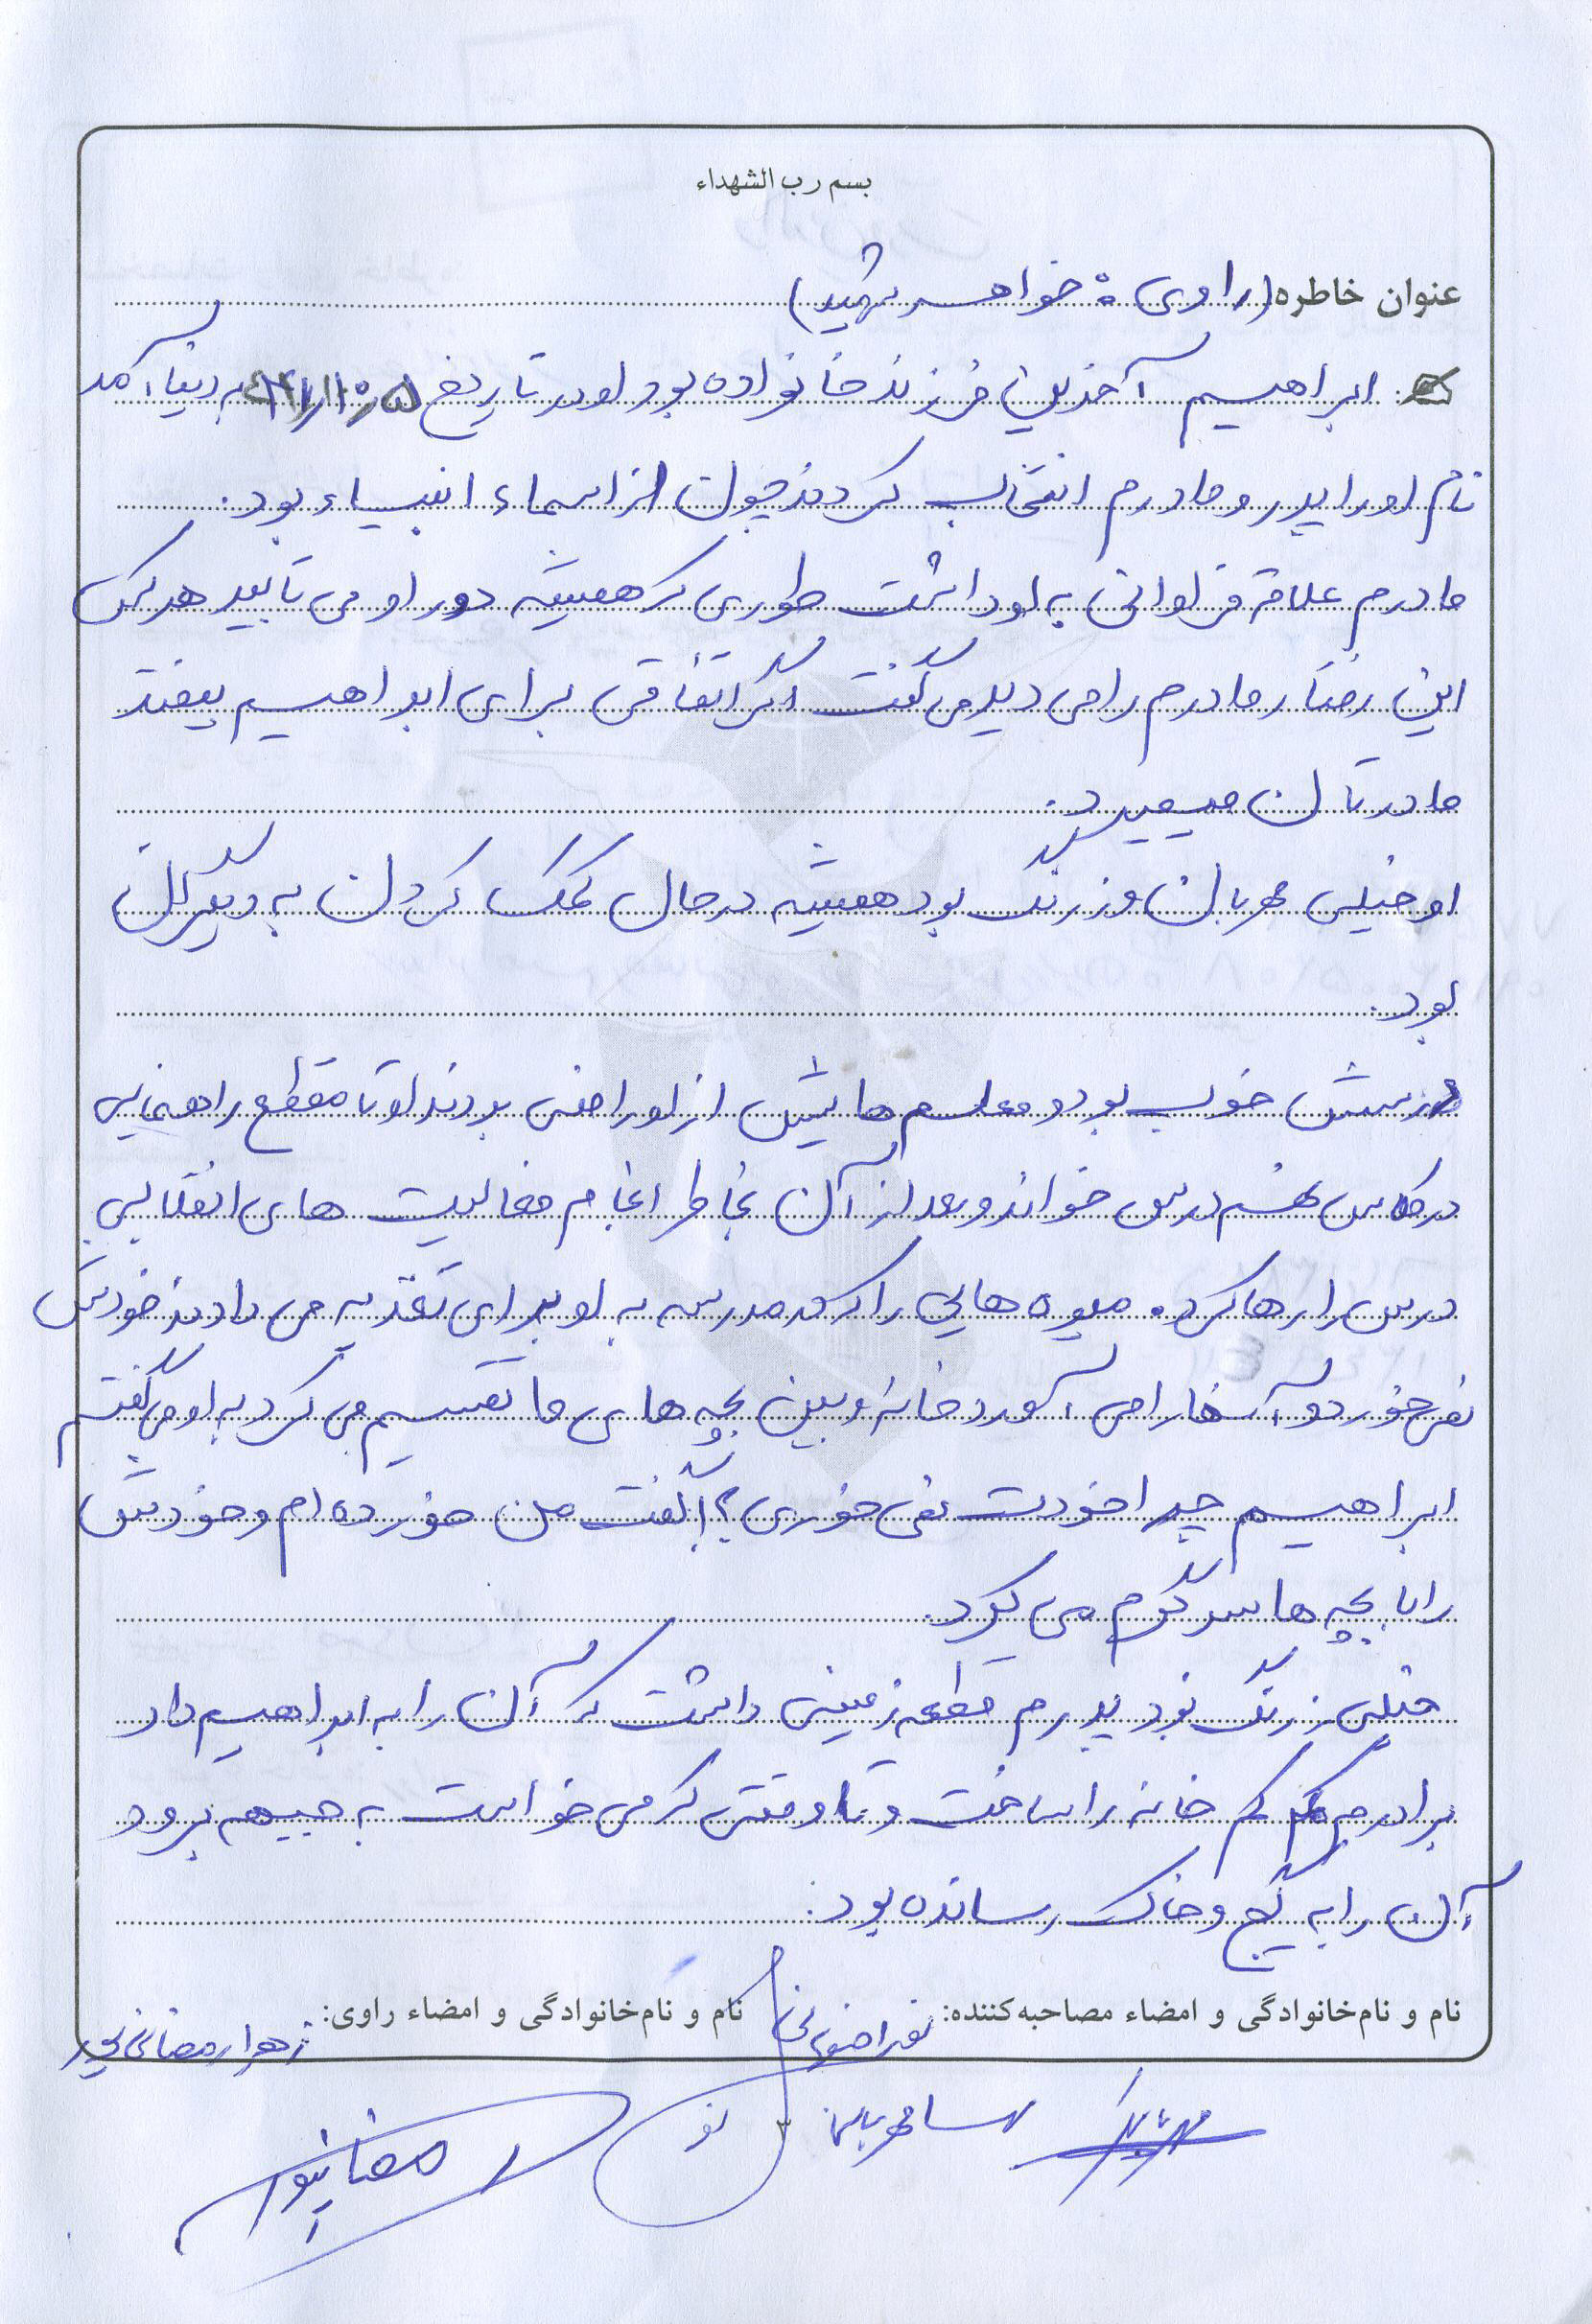 بسم رب الشهداء
عنوان خاطره (راوی: خواهر شهید)
ابراهیم آخرین فرزند خانواده بود او در تاریخ به دنیا آمد
نام او را پدر و مادرم انتخاب کردند چون از اسماء انبیاء بود.
مادرم علاقه فراوانی به او داشت طوری که همیشه دور او می تابید هر کس
این رفتار مادرم را می دید می گفت اگر اتفاقی برای ابراهیم بیفتد
مادرتان میمیرد.
او خیلی مهربان و زرنگ بود همیشه در حال کمک کردن به دیگران
بود.
درسش خوب بود و معلم هایش از او راضی بودند او تا مقطع راهنمایی
در کلاس درس خواند و بعد از آن بخاطر انجام فعالیت های انقلابی
درس را رها کرد. میوه هایی را که در مدرسه به او برای تغذیه می دادند خودش
نمی خورد و آنها را می آورد خانه و بین بچه های ما تقسیم می کرد به او می گفتم
ابراهیم چرا خودت نمی خوری؟! گفت من خورده ام و خودش
را با بچه ها سرگرم می کرد.
خیلی زرنگ بود پدرم قطعه زمینی داشت که آن را به ابراهیم داد
برادرم کم کم خانه را ساخت و تا وقتی که می خواست به جبهه برود
آن را به گچ و خاک رسانده بود.
نام و نام‌خانوادگی و امضاء مصاحبه‌کننده: نام و نام‌خانوادگی و امضاء راوی: زهرا رمضانی پور
رمضانپور